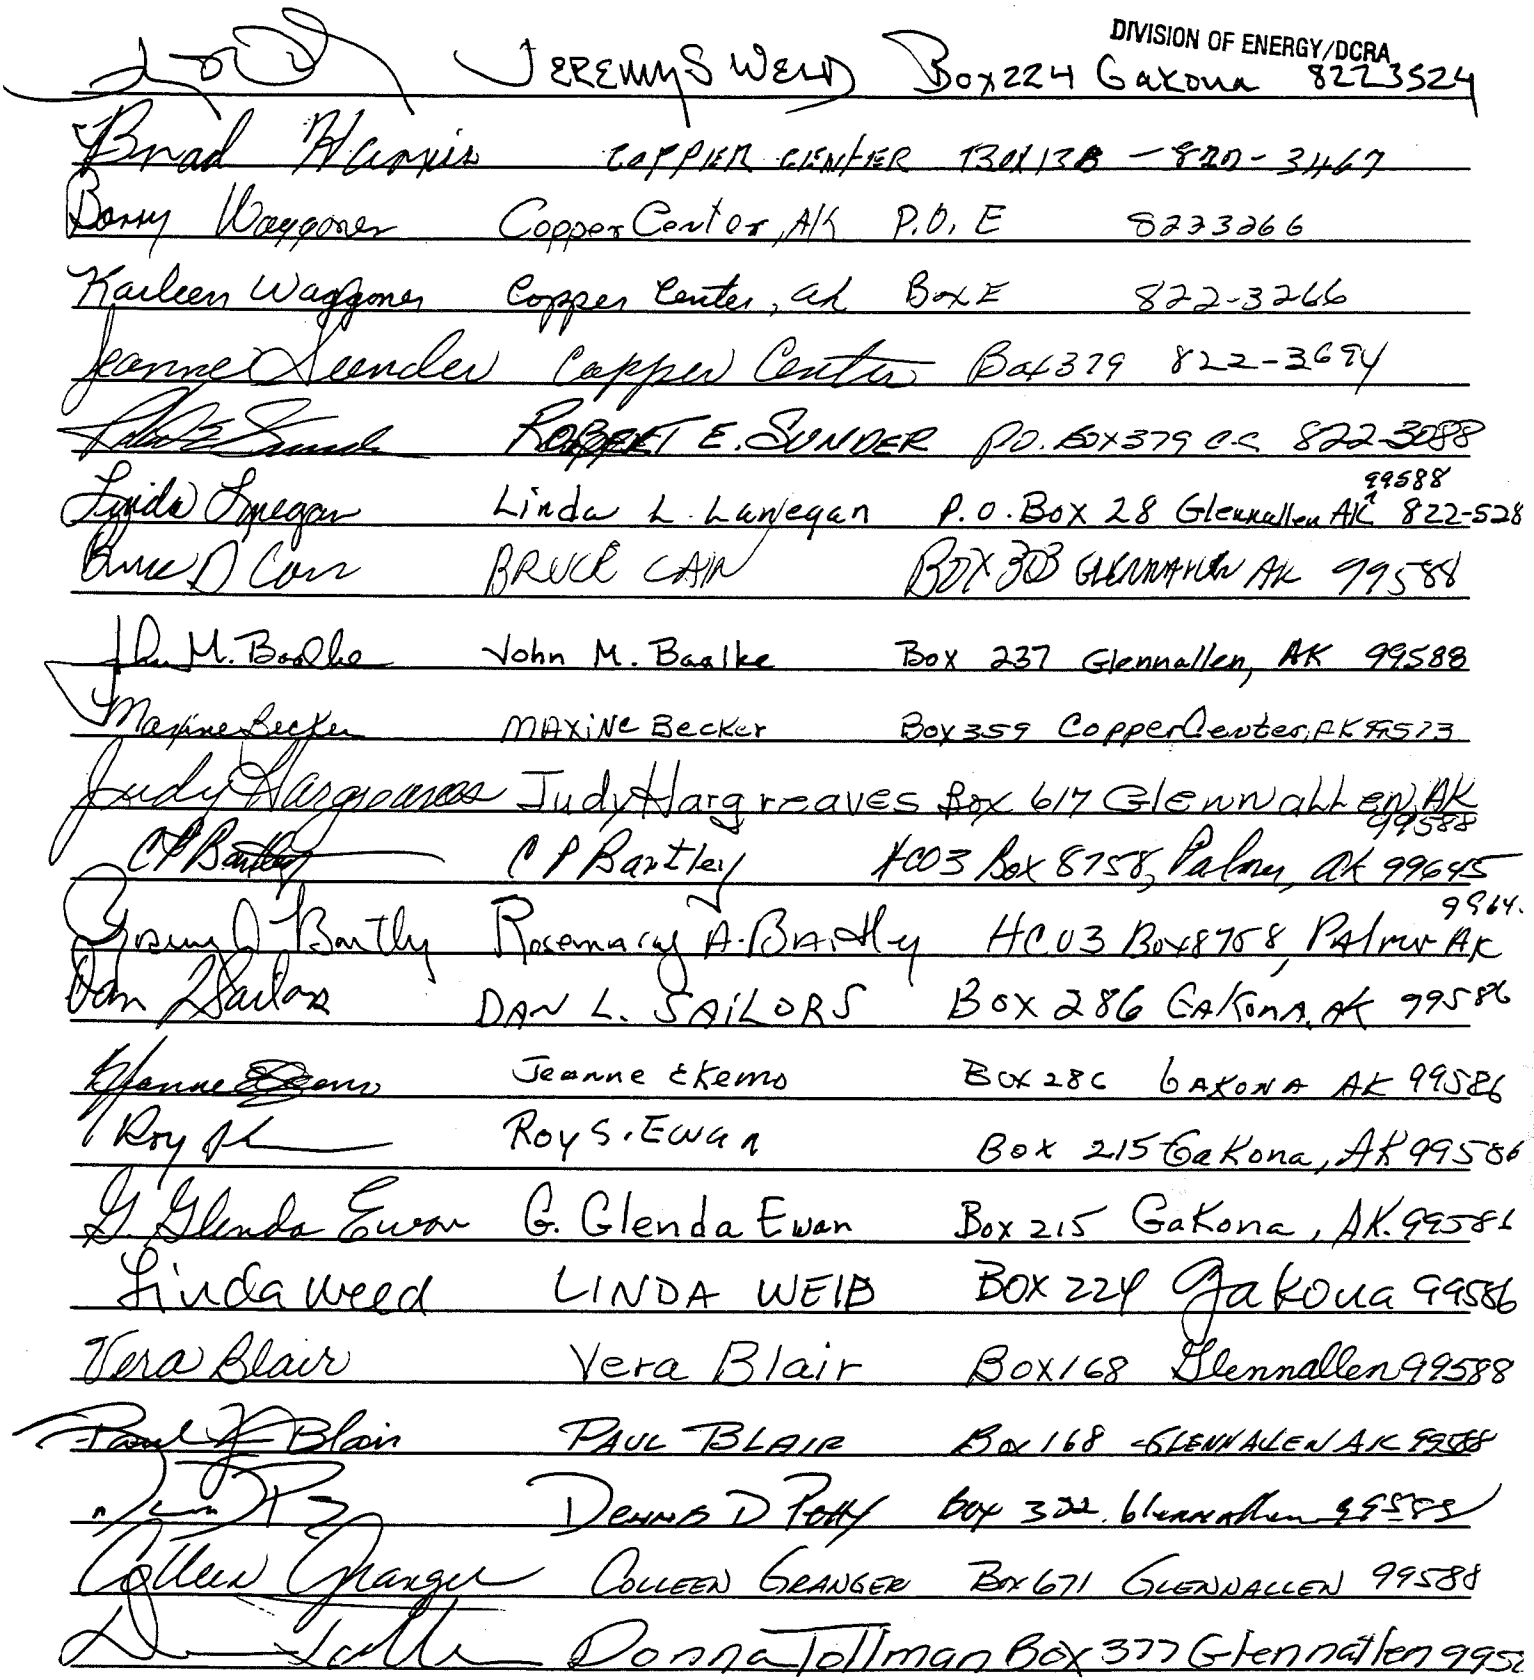 DIVISION OF ENERGY/DCRA
JEREMY S WELD Box 224 Gakona 8223524
Brad Harris COPPER CENTER BOX 138 - 822-3467
Barry Waggoner Copper Center, AK P.O. E 8223266
Karleen Waggoner Copper Center, ak Box E 822-3266
Jeanne Sunder Copper Center Box 379 822-3694
ROBERT E. SUNDER P.O. BOX 379 C.C. 822-3088
99588
Linda Lanegan Linda L. Lanegan P.O. Box 28 Glennallen AK 822-528
Bruce D Cain BRUCE CAIN BOX 303 GLENNALLEN AK 99588
John M. Baalke John M. Baalke Box 237 Glennallen, AK 99588
Maxine Becker MAXINE Becker Box 359 Copper Center, AK 99573
Judy Hargreaves Judy Hargreaves Box 617 Glennallen, AK
99588
CP Bartley CP Bartley HC03 Box 8758, Palmer, ak 99645
9964
Rosemary A Bartly Rosemary A. Bartley HC03 Box 8758, Palmer AK
Dan L Sailors DAN L. SAILORS BOX 286 GAKONA, AK 99586
Jeanne Ekemo BOX 286 GAKONA AK 99586
Roy Roy S. Ewan Box 215 Gakona, AK 99586
G. Glenda Ewan G. Glenda Ewan Box 215 Gakona, AK. 99586
Linda Weed LINDA WEID BOX 224 Gakona 99586
Vera Blair Vera Blair Box 168 Glennallen 99588
Paul Blair PAUL BLAIR Box 168 GLENNALLEN AK 99588
Dennis D Potty Box 322 Glennallen 99588
Colleen Granger COLLEEN GRANGER Box 671 GLENNALLEN 99588
Donna Tollman Box 377 Glennallen 9958